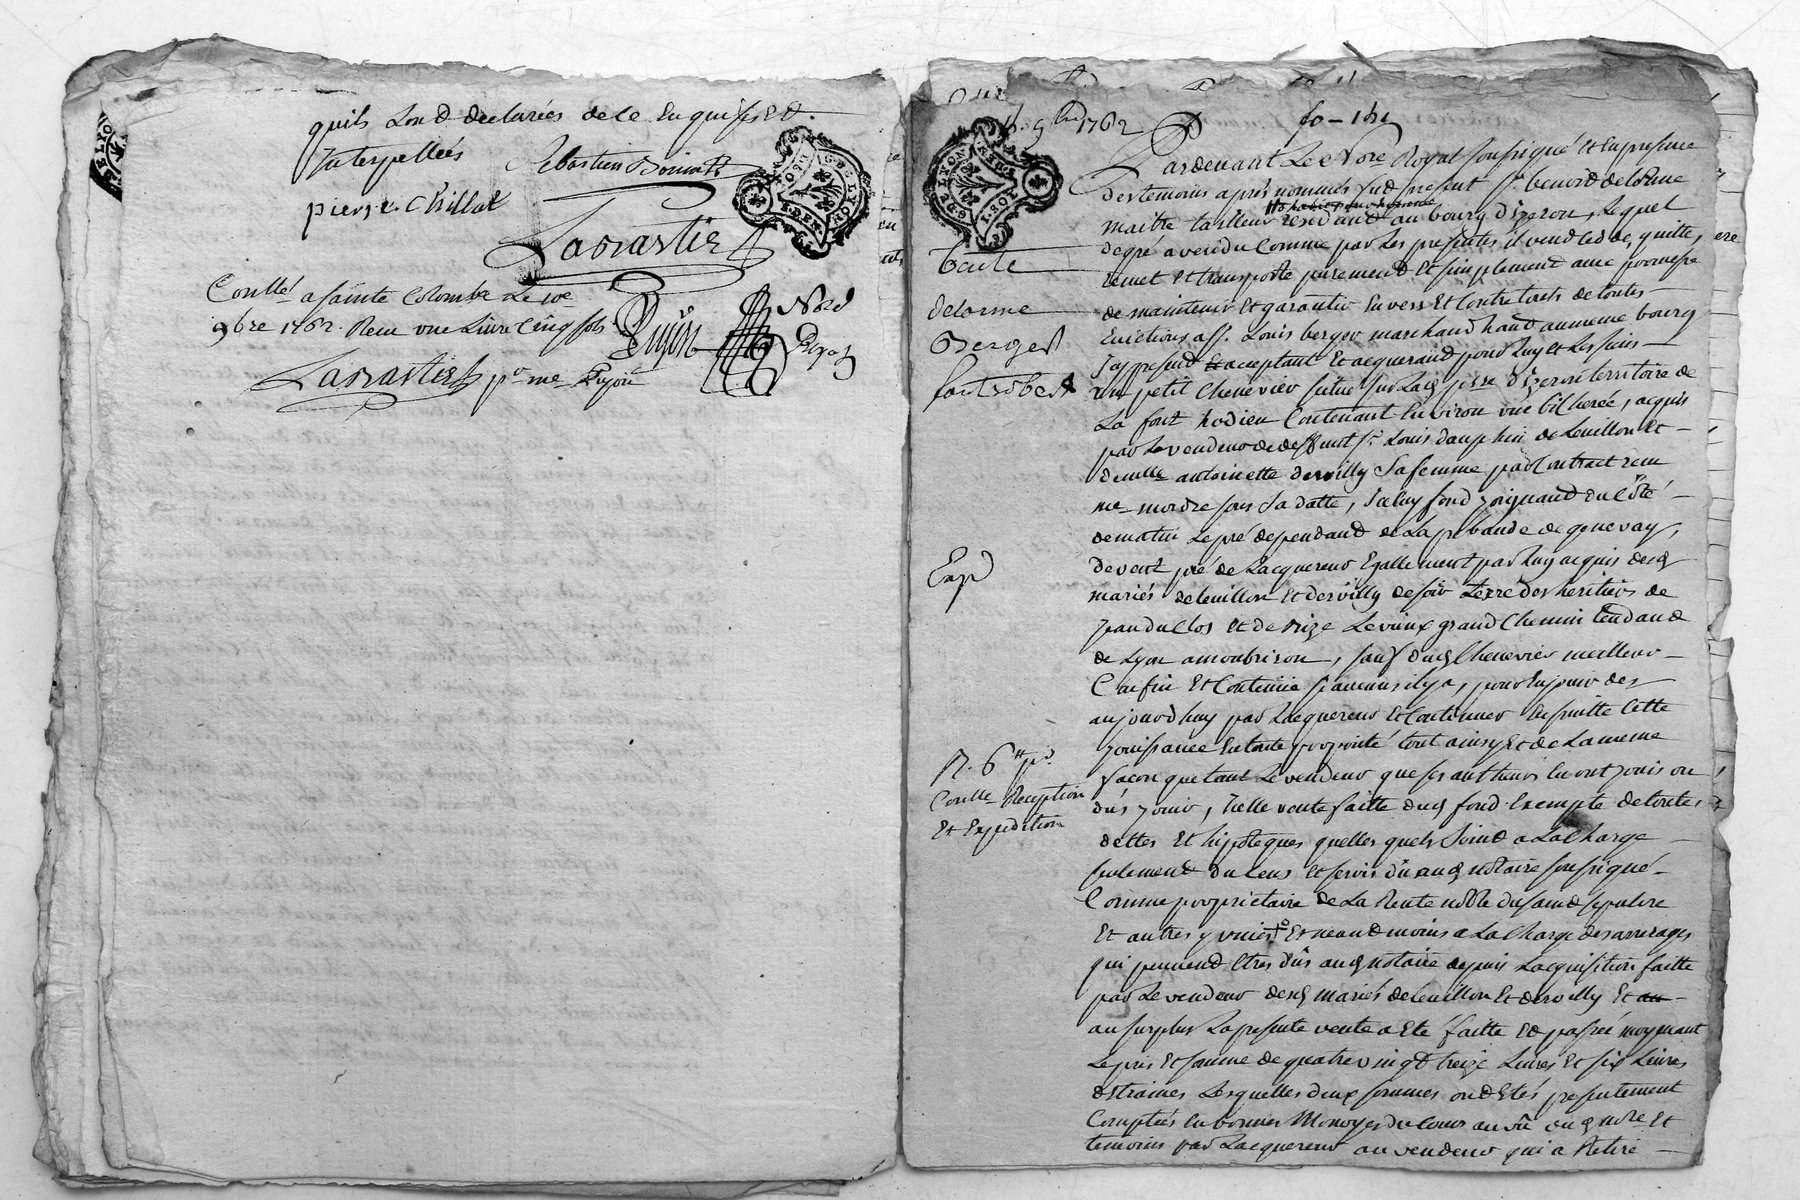 quils Lond declarées de ce Enquis Et.
Interpellées
Sebastien
pierre Chillet
GE LYON
GE LYON
DEN
Contllé a Sainte Colombe Le 10e
9bre 1762. Reçu une Livre Cinq sols
pr me Dujon
Dujon
Nore
Royal
1762
fo - 141
GE LYON
DEN
Vente
delorme
Berger
Exp
R. 6 tt ps
Contlle Reception
Et Expedition
Pardevant Le Nore Royal soussigné Et En presence
des temoins après nommés fud present sr. benoist delorme
maitre tailleur residant au bourg d'izeron, Lequel
de gré a vendu Comme par Les presentes il vend cede, quitte,
remet Et transporte purement Et simplement avec promesse
de maintenir Et garantir Envers Et Contre touts de toutes
Evictions a sr. Louis berger marchand au meme bourg
Icy present acceptant Et acquerand pour Luy et Les siens
un petit Chenevier situé sur La parroisse d'izeron territoire de
La font Contenant Environ une bicherée, acquis
par Le vendeur de deffunt sr. Louis dauphin de Leuillon Et
demlle antoinette dervilly sa femme par Contract reçu
me sous sa datte, Iceluy fond joignand du Côté
de matin Le pré dependand de La prebande de genevay,
de vent pré de Lacquereur Egallement par Luy acquis desd
mariés deleuillon Et dervilly de soir terre des heritiers de
jean duclos Et de bize Le vieux grand Chemin tendand
de Lyon a monbrison, sauf dud Chenevier meilleur
Confin Et Contenüe si aucuns il y a, pour En jouir des
aujourdhuy par Lacquereur Et Continuer Ensuitte Cette
jouissance En toute proprieté tout ainsy Et de La meme
façon que tant Le vendeur que ses autheurs En ont jouis ou
dûs jouir, Icelle vente faitte dud fond Exempte de toutes
dettes Et hipoteques quelles quels soind a La Charge
seulement du Cens Et servis dû aud notaire soussigné
Comme proprietaire de La Rente noble du saind sepulcre
Et autres y unies Et neandmoins a La Charge des arrerages
qui peuvend Etres dûs aud notaire depuis Lacquisition faitte
par Le vendeur desd mariés deleuillon Et dervilly Et
au surplus La presente vente a Eté faitte Et passée moyenant
Le prix Et somme de quatre vingd treize Livres Et six Livres
d'etraines Lesquelles deux sommes ond Etés presentement
Comptées En bonnes Monoyes du Cours au vû dud Nore Et
temoins par Lacquereur au vendeur qui a Retiré